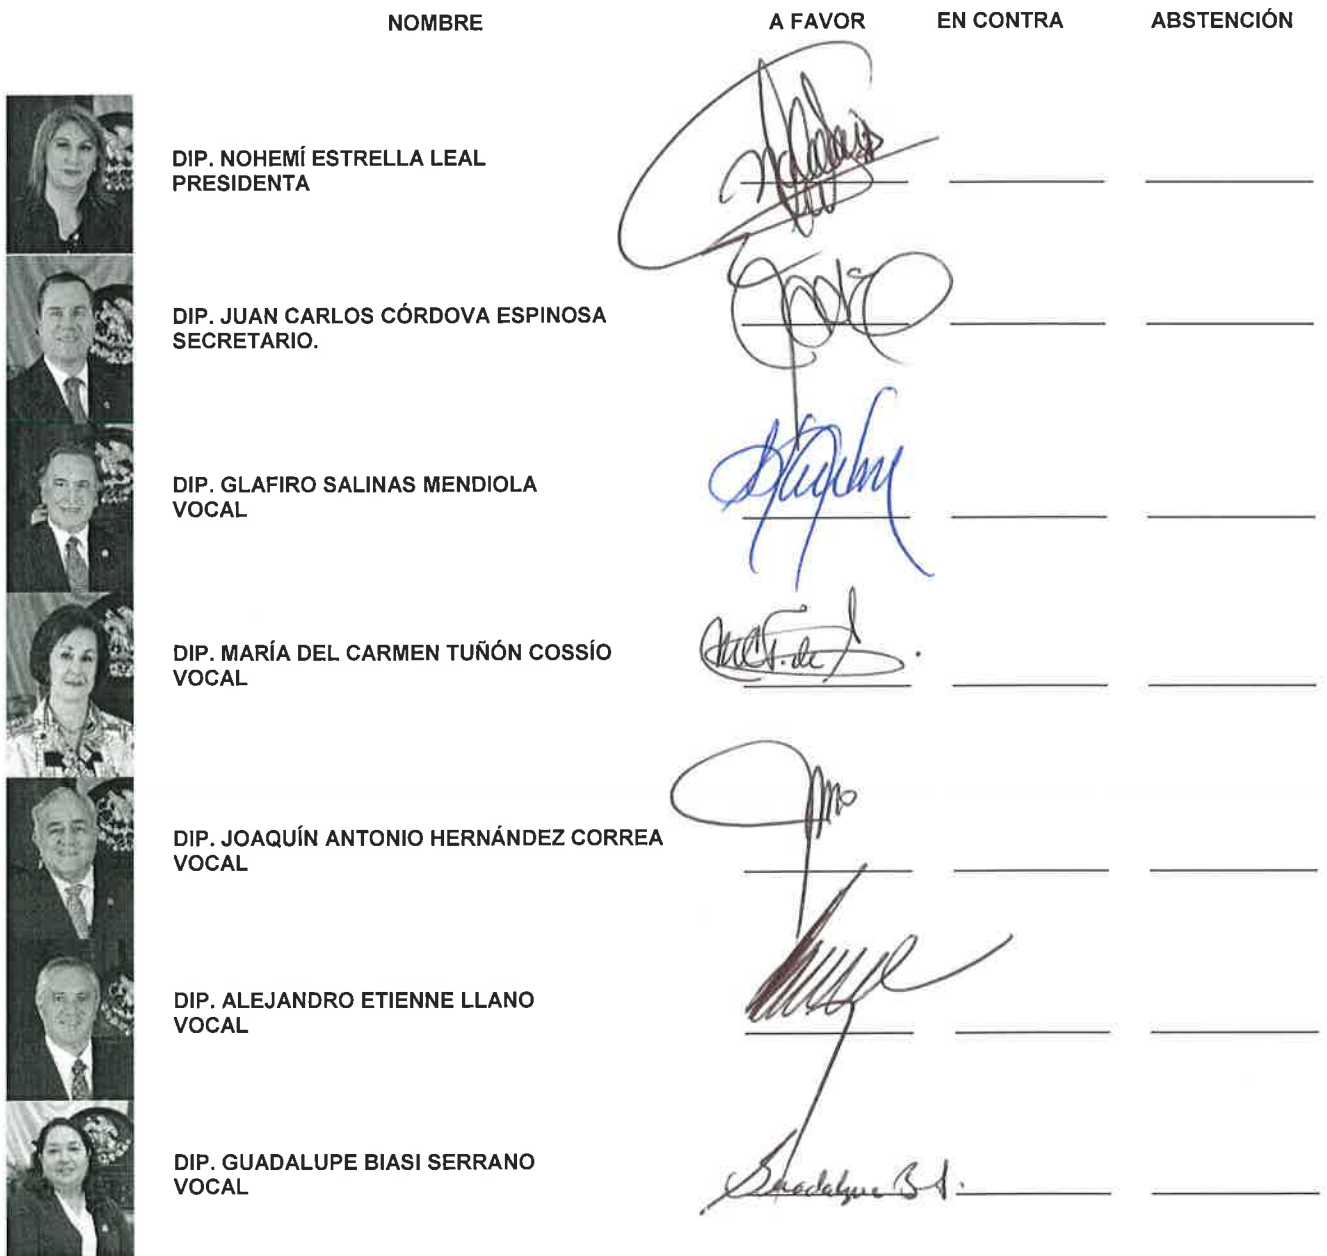 NOMBRE A FAVOR EN CONTRA ABSTENCIÓN
DIP. NOHEMÍ ESTRELLA LEAL
PRESIDENTA
DIP. JUAN CARLOS CÓRDOVA ESPINOSA
SECRETARIO.
DIP. GLAFIRO SALINAS MENDIOLA
VOCAL
DIP. MARÍA DEL CARMEN TUÑÓN COSSÍO
VOCAL
DIP. JOAQUÍN ANTONIO HERNÁNDEZ CORREA
VOCAL
DIP. ALEJANDRO ETIENNE LLANO
VOCAL
DIP. GUADALUPE BIASI SERRANO
VOCAL
Guadalupe B S.